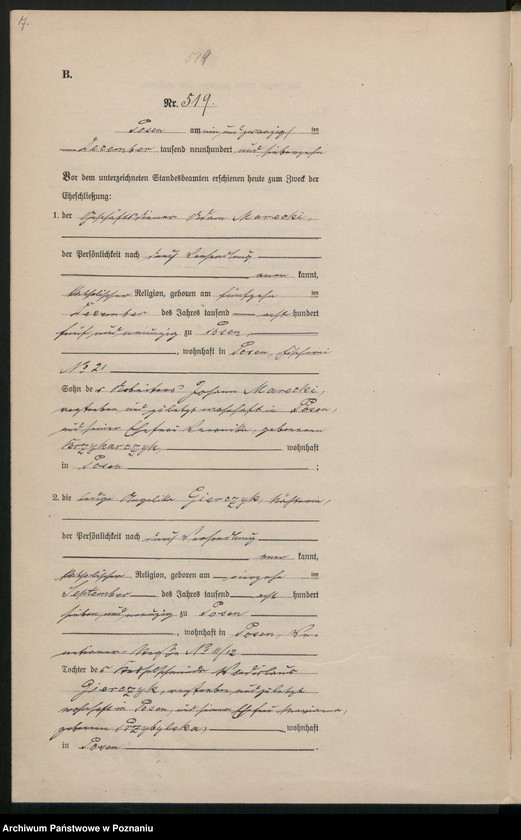 17.
519
B.
Nr. 519.
Posen am ein und zwanzigsten
December tausend neunhundert und siebzehn
Vor dem unterzeichneten Standesbeamten erschienen heute zum Zweck der
Eheschließung:
1. der Geschäftsdiener Adam Marecki,
der Persönlichkeit nach durch Verhandlung
anerkannt,
katholischer Religion, geboren am fünfzehnten
December des Jahres tausend acht hundert
fünf und neunzig zu Posen
, wohnhaft in Posen, Fischerei
No 21
Sohn des Arbeiters Johann Marecki,
verstorben und zuletzt wohnhaft in Posen,
und seiner Ehefrau Veronika, geborenen
Krzykarczyk, wohnhaft
in Posen ;
2. die ledige Angelika Gierczyk, Näherin,
der Persönlichkeit nach durch Verhandlung
anerkannt,
katholischer Religion, geboren am vierzehnten
September des Jahres tausend acht hundert
sieben und neunzig zu Posen
, wohnhaft in Posen, Ve-
No 11/12
Tochter des Kesselschmieds Wladislaus
Gierczyk, verstorben und zuletzt
wohnhaft in Posen, und seiner Ehefrau Marianna,
geborenen Przybylska, wohnhaft
in Posen .
Archiwum Państwowe w Poznaniu